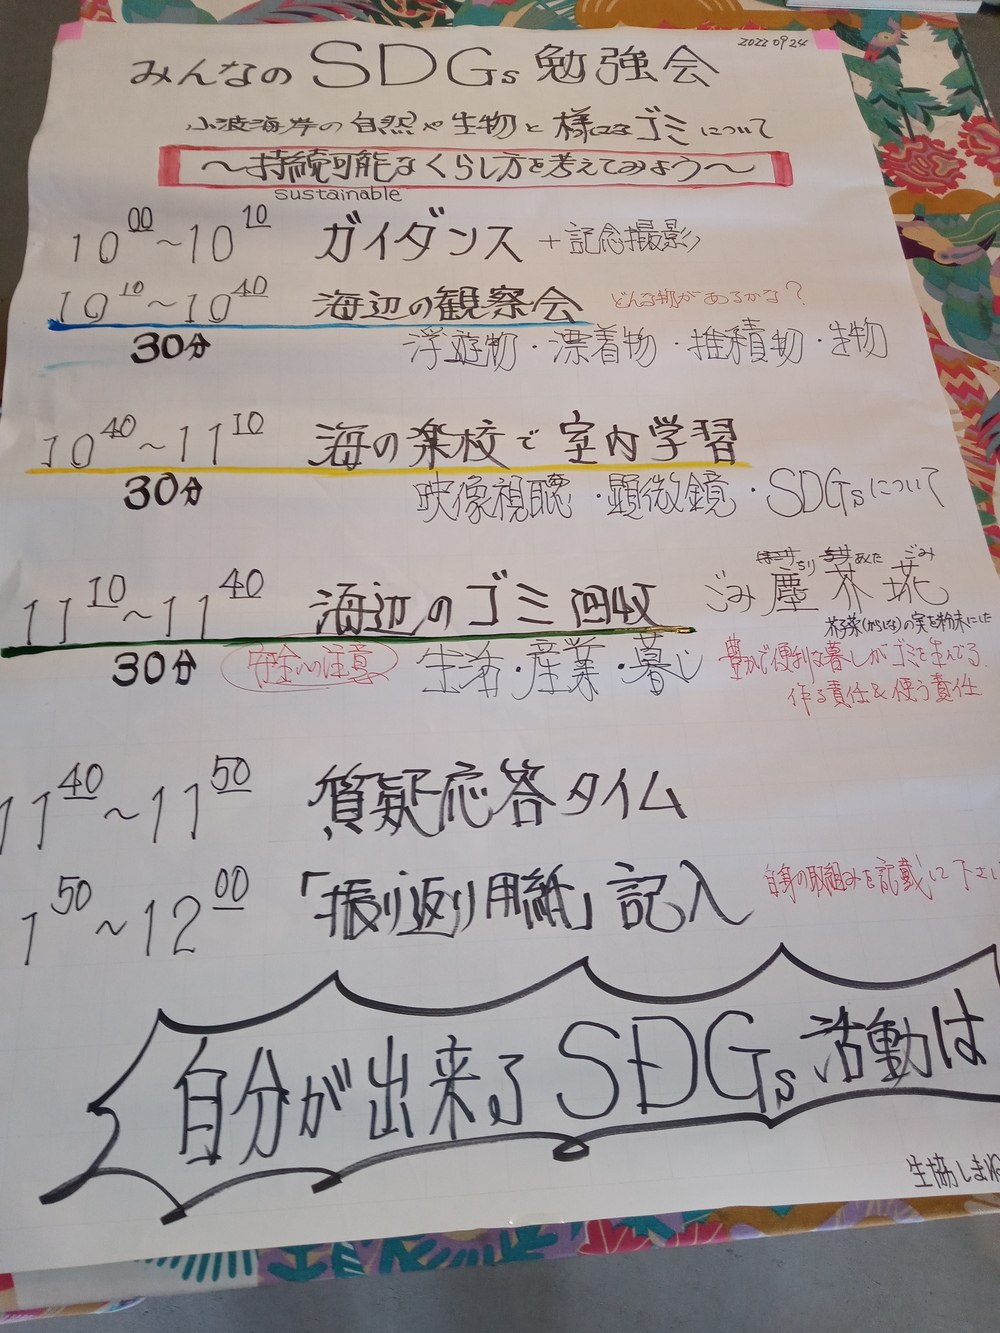 2022 09 24
みんなの SDGs 勉強会
小波海岸の自然や生物と様々なゴミについて
～持続可能なくらし方を考えてみよう～
sustainable
10 00 ～ 10 10 ガイダンス + 記念撮影
10 10 ～ 10 40 海辺の観察会 どんな物があるかな?
30分 浮遊物・漂着物・堆積物・生物
10 40 ～ 11 10 海の楽校で室内学習
30分 映像視聴・顕微鏡・SDGsについて
ちり あくた ごみ
11 10 ～ 11 40 海辺のゴミ回収 ごみ 塵 芥 埖
芥子菜(からしな)の実を粉末にした
30分 安全への注意 生活・産業・暮し 豊かで便利な暮しがゴミを生んでる
作る責任&使う責任
11 40 ～ 11 50 質疑応答タイム
1 50 ～ 12 00 「振り返り用紙」記入 自身の取組みを記載して下さい
自分が出来る SDGs 活動は
生協しまね